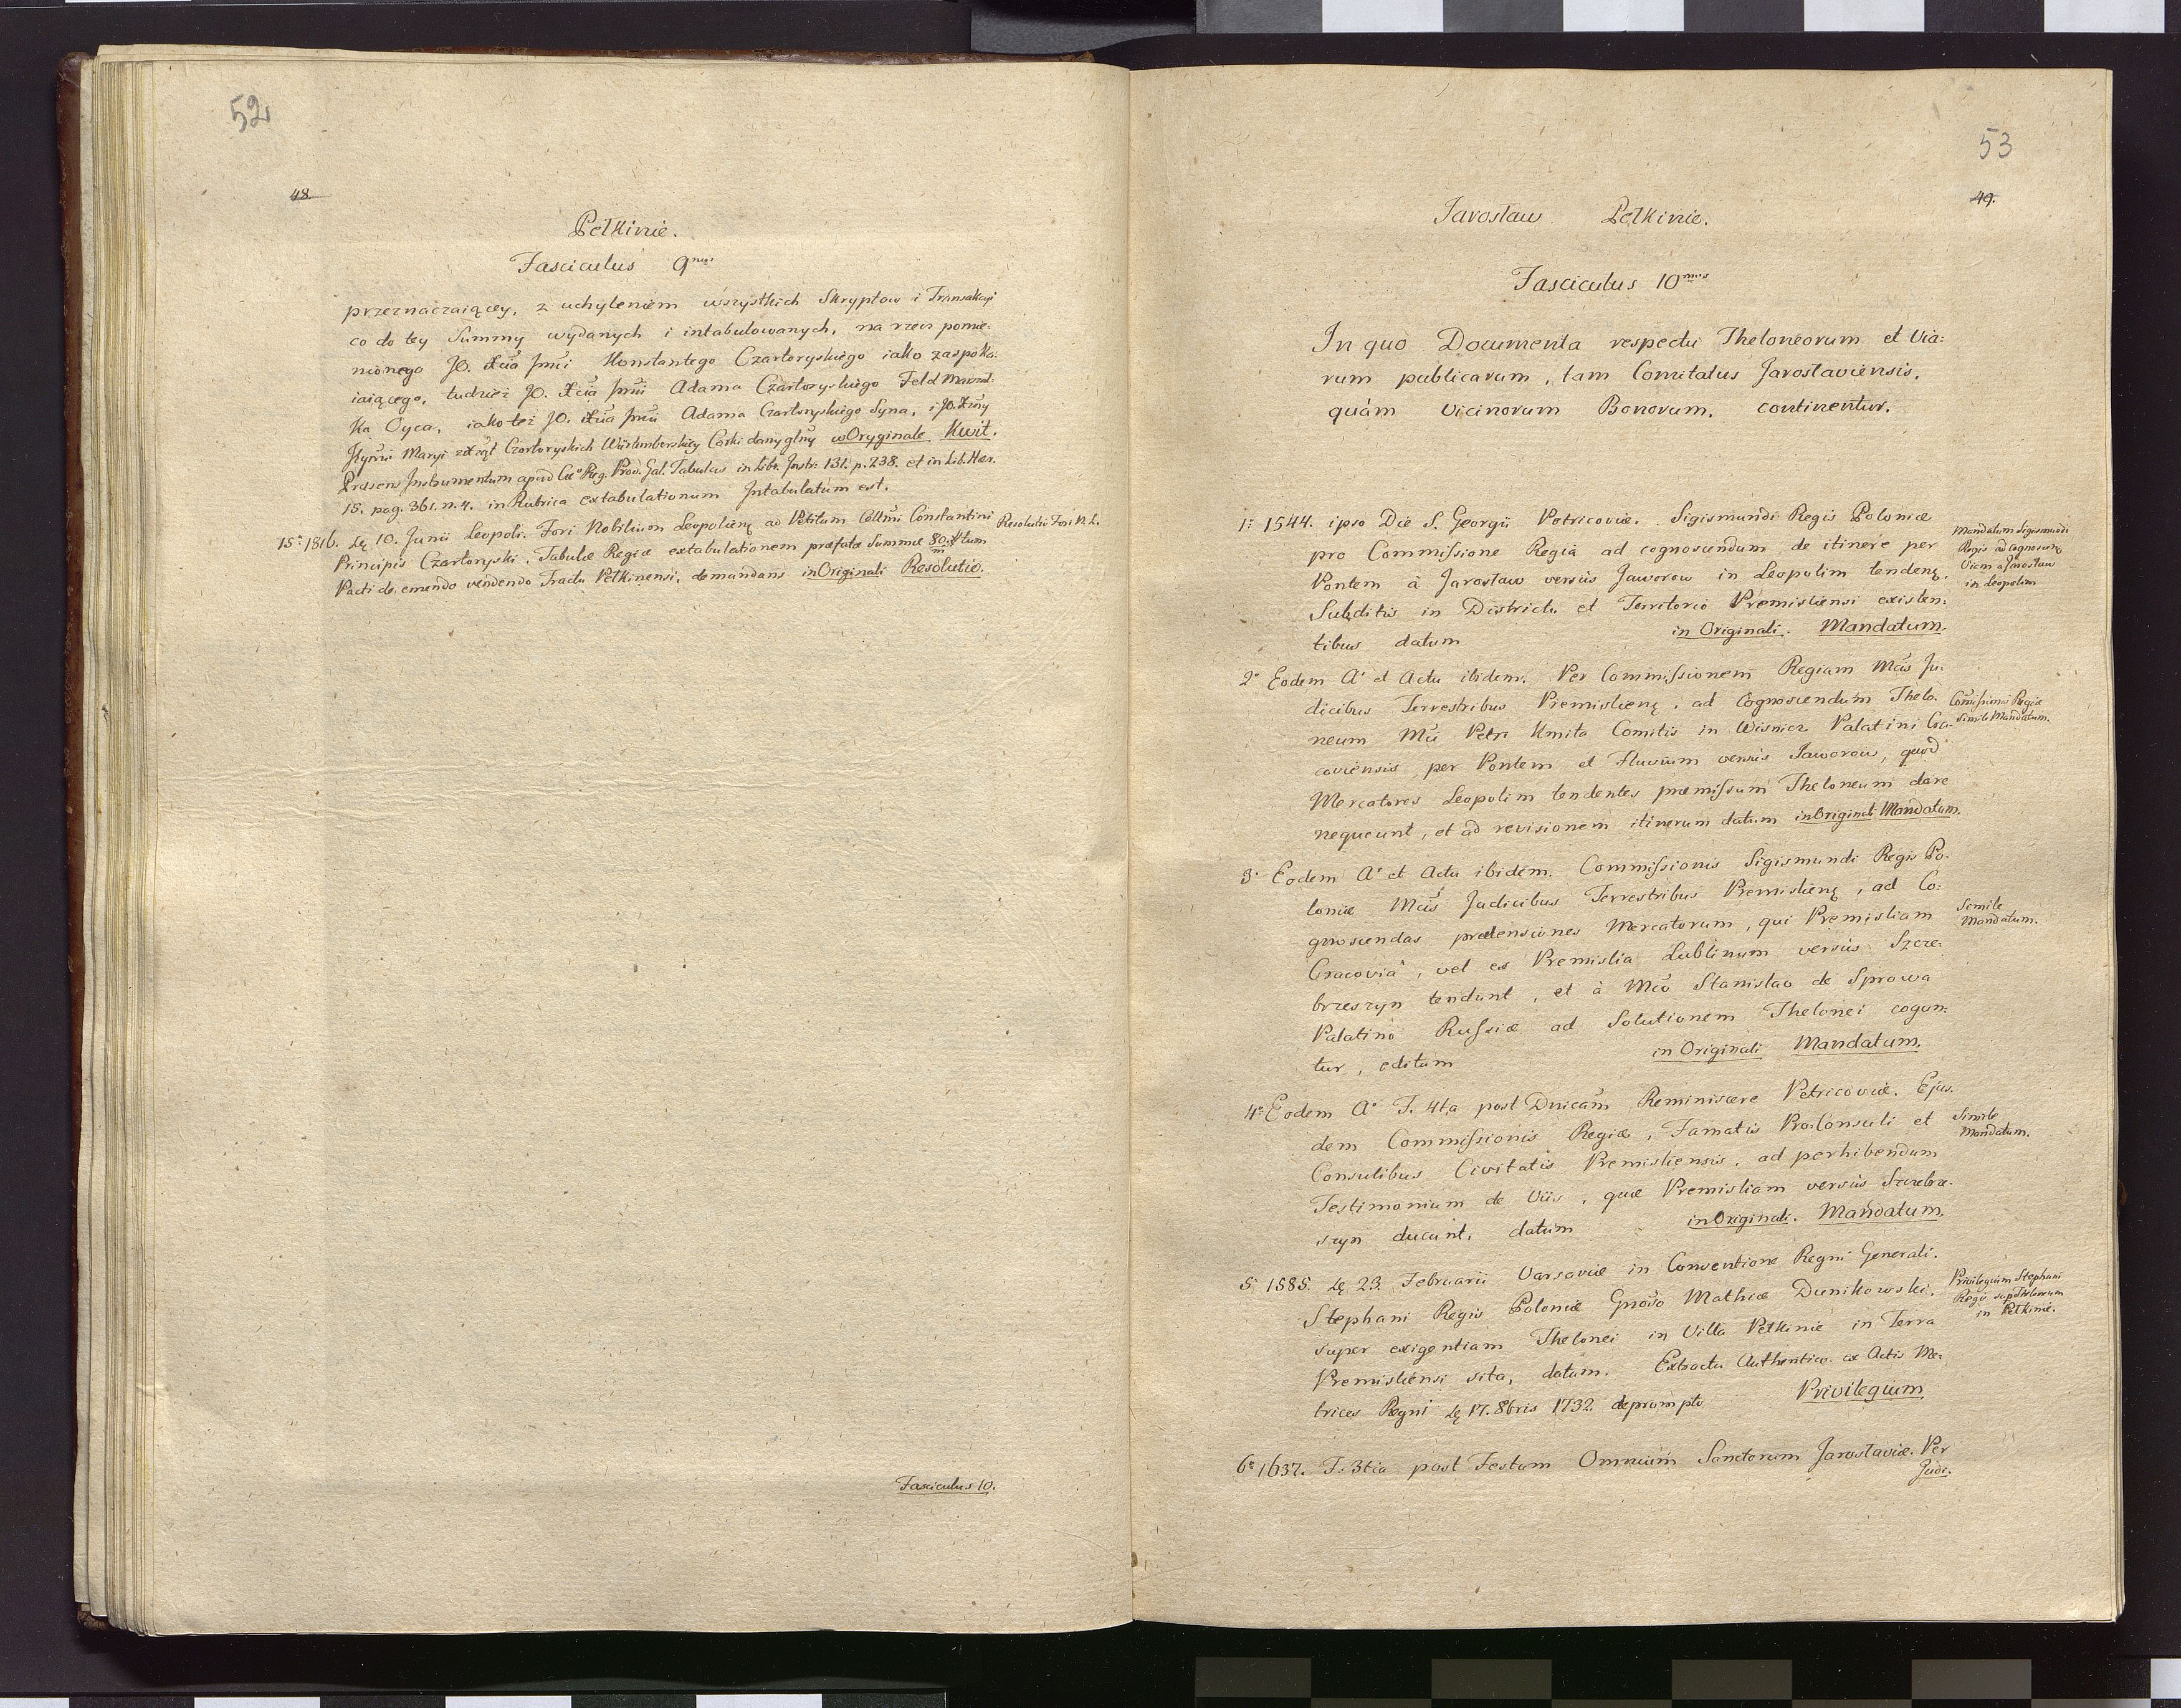 52
48.
Pełkinie.
Fasciculus 9nus
przeznaczaiącey, z uchyleniem wszystkich Skryptow i Transakcyi
co do tey Summy wydanych i intabulowanych, na rzecz pomie-
nionego JO. Xcia Jmci Konstantego Czartoryskiego iako zaspoka:
iaiącego, tudzież JO. Xcia Jmci Adama Czartoryskiego Feld Marszał:
ka Oyca, iako też JO. Xcia Jmci Adama Czartoryskiego Syna, i JO. Xżny
Maryi Xżąt Czartoryskich Würtemberskiey Corki dany w Oryginale Kwit.
Præsens Instrumentum apud Reg. Prov. Gal. Tabulas in Lib. Instr. 131. p. 238. et in Lib. Hær.
15. pag. 361. n. 4. in Rubrica extabulationum Intabulatum est.
15º 1816. 10. Junii Leopoli. Fori Nobilium Leopolieng ad Petitum Constantini
Principis Czartoryski, Tabulæ Regiæ extabulationem præfatæ Summæ 80.
Pacti de emendo vendendo Tractu Pełkinensi, demandans in Originali Resolutio.
Resolutio Fori N. L.
Fasciculus 10.
53
49.
Jarosław Pełkinie.
Fasciculus 10mus
In quo Documenta respectu Theloneorum et Via:
rum publicarum, tam Comitatus Jaroslaviensis,
quàm vicinorum Bonorum, continentur.
1º 1544. ipso Die S. Georgii Petricoviæ. Sigismundi Regis Poloniæ
pro Commissione Regia ad cognoscendum de itinere per
Pontem à Jarosław versùs Jaworow in Leopolim tendeng.
Subditis in Districtu et Territorio Premisliensi existen:
tibus datum in Originali. Mandatum.
Mandatum Sigismundi
Regis ad cognoscendg
Viam a Jarosław
in Leopolim
2º Eodem Aº et Actu ibidem. Per Commissionem Regiam Mcis Ju:
dicibus Terrestribus Premislieng, ad Cognoscendum Thelo-
neum Mci Petri Kmita Comitis in Wisnicz Palatini Cra-
coviensis, per Pontem et Fluvium versùs Jaworow, quod
Mercatores Leopolim tendentes præmissum Theloneum dare
nequeunt, et ad revisionem itinerum datum in Originali Mandatum.
Comissionis Regiæ
simile Mandatum.
3º Eodem Aº et Actu ibidem. Commissionis Sigismundi Regis Po-
loniæ Mcis Judicibus Terrestribus Premislieng, ad Co:
gnoscendas prætensiones Mercatorum, qui Premisliam
Cracoviâ, vel ex Premislia Lublinum versùs Szcze:
brzeszyn tendunt, et à Mco Stanislao de Sprowa
Palatino Russiæ ad Solutionem Thelonei cogun:
tur, editum in Originali Mandatum.
Simile
Mandatum.
4º Eodem Aº F. 4ta post Dnicam Reminiscere Petricoviæ. Ejus-
dem Commissionis Regiæ, Famatis Proconsuli et
Consulibus Civitatis Premisliensis, ad perhibendum
Testimonium de Viis, quæ Premisliam versùs Szczebrze-
szyn ducunt, datum in Originali. Mandatum.
Simile
Mandatum.
5º 1585. 23. Februarii Varsaviæ in Conventione Regni Generali.
Stephani Regis Poloniæ Gnoso Mathiæ Dunikowski,
super exigentiam Thelonei in Villa Pełkinie in Terra
Premisliensi sita, datum. Extractu Authentico ex Actis Me-
trices Regni 17. 8bris 1732 deprompto Privilegium
Privilegium Stephani
Regis
in Pełkinie.
6º 1637. F. 3tia post Festum Omnium Sanctorum Jaroslaviæ. Per
Judi: